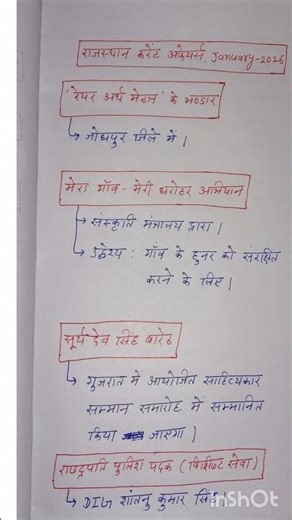 राजस्थान करेंट अफेयर्स, January-2026
'रेयर अर्थ मेटल' के भण्डार
↳ जोधपुर जिले में।
मेरा गाँव - मेरी धरोहर अभियान
→ संस्कृति मंत्रालय द्वारा।
→ उद्देश्य : गाँव के हुनर को संरक्षित
करने के लिए।
सूर्य देव सिंह बारेठ
↳ गुजरात में आयोजित साहित्यकार
सम्मान समारोह में सम्मानित
किया जाएगा।
राष्ट्रपति पुलिस पदक (विशिष्ट सेवा)
↳ DIG शांतनु कुमार सिंह
InShOt